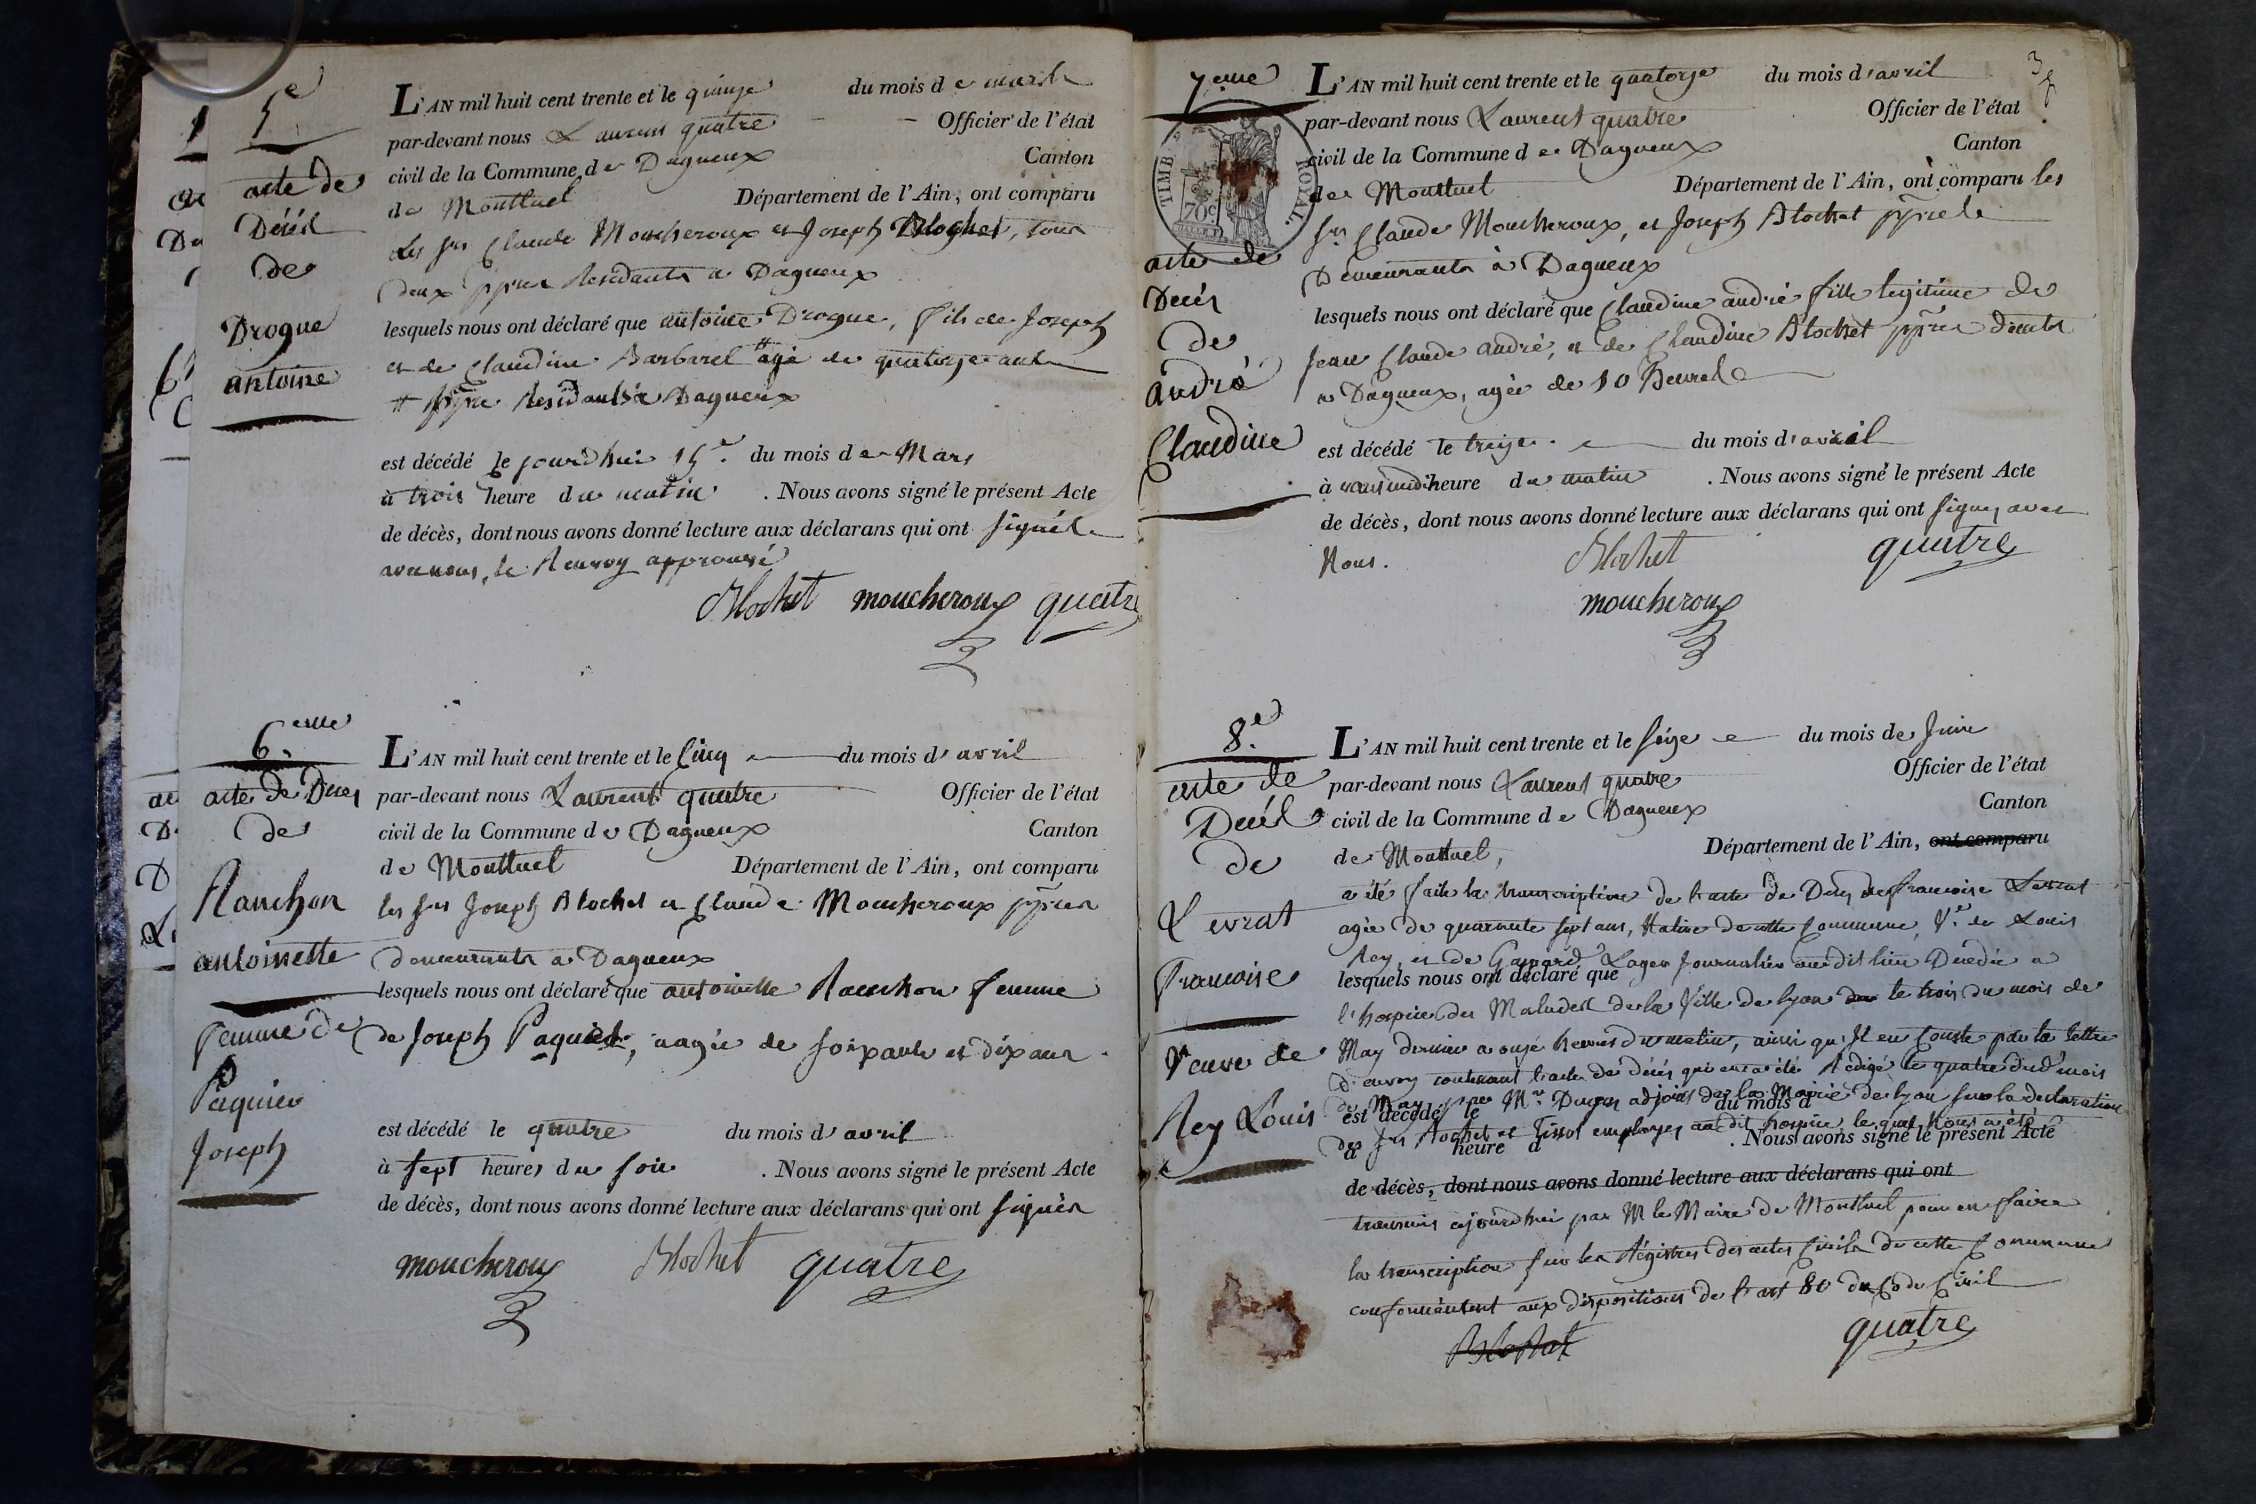 5e
acte de
Décès
de
Drogue
antoine
L'AN mil huit cent trente et le quinze du mois de mars
par-devant nous Laurent quatre Officier de l'état
civil de la Commune de Dagneux Canton
de Montluel Département de l'Ain, ont comparu
les srs Claude Moucheroux et Joseph Blochet, tous
deux ppres Residants a Dagneux
lesquels nous ont déclaré que antoine Drogue, fils de Joseph
et de Claudine Barbarel # agé de quatorze ans
# ppre Residants a Dagneux
est décédé le jourd'hui 15e du mois de Mars
à trois heure du matin . Nous avons signé le présent Acte
de décès, dont nous avons donné lecture aux déclarans qui ont signés
avec nous, le Renvoy approuvé
Blochet moucheroux quatre
6eme
acte de Deces
de
Ranchon
antoinette
femme de
Paquier
Joseph
L'AN mil huit cent trente et le Cinq du mois d'avril
par-devant nous Laurent quatre Officier de l'état
civil de la Commune de Dagneux Canton
de Montluel Département de l'Ain, ont comparu
les srs Joseph Blochet et Claude Moucheroux ppres
demeurants a Dagneux
lesquels nous ont déclaré que antoinette Ranchon femme
de Joseph Paquier, agée de soixante et dix ans
est décédé le quatre du mois d'avril
à sept heures du soir . Nous avons signé le présent Acte
de décès, dont nous avons donné lecture aux déclarans qui ont signés
moucheroux Blochet quatre
3
7eme
TIMB ROYAL
70c
acte de
Deces
de
andré
Claudine
L'AN mil huit cent trente et le quatorze du mois d'avril
par-devant nous Laurent quatre Officier de l'état
civil de la Commune de Dagneux Canton
de Montluel Département de l'Ain, ont comparu les
srs Claude Moucheroux, et Joseph Blochet ppres
Demeurants à Dagneux
lesquels nous ont déclaré que Claudine andré fille legitime de
Jean Claude andré, et de Claudine Blochet ppres
a Dagneux, agée de 10 heures
est décédé le treize du mois d'avril
à heure du matin . Nous avons signé le présent Acte
de décès, dont nous avons donné lecture aux déclarans qui ont signez avec
Nous.
Blochet quatre
moucheroux
8e
acte de
Décès
de
Levrat
Francoise
Veuve de
Rey Louis
L'AN mil huit cent trente et le Seize du mois de Juin
par-devant nous Laurent quatre Officier de l'état
civil de la Commune de Dagneux Canton
de Montluel, Département de l'Ain, ont comparu
a été faite la transcription de l'acte de Deces de francoise Levrat
agée de quarante sept ans, Native de cette Commune, Ve de Louis
Rey et de Gaspard Lager Journalier audit lieu Décédée a
lesquels nous ont déclaré que
l'hospice des Malades de la Ville de Lyon le trois du mois de
May dernier a onze heures du matin, ainsi qu'il en Conste par la lettre
d'envoy contenant l'acte de décès qui en a été Rédigé le quatre dud. mois
de May par Mr adjoint de la Mairie de Lyon sur la declaration
est décédé le du mois d
des srs Rochet et Tissot employes audit hospice, lequel Nous a été
à heure d . Nous avons signé le présent Acte
de décès, dont nous avons donné lecture aux déclarans qui ont
transmis ajourd'hui par M le Maire de Montluel pour en faire
la transcription sur les Régistres des actes Civils de cette Commune
conformément aux dispositions de l'art 80 du Code Civil
Blochet quatre